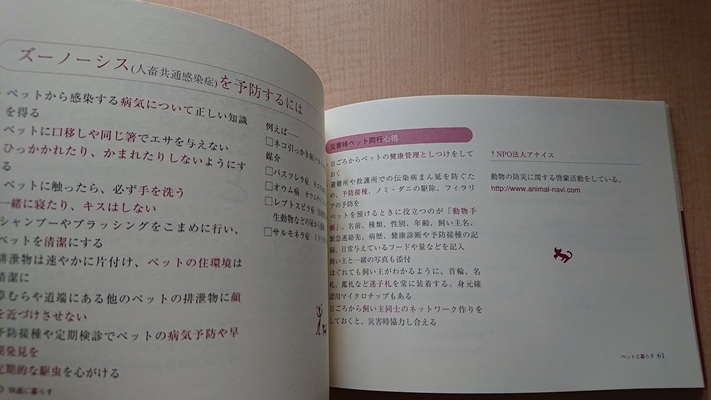 ズーノーシス(人畜共通感染症)を予防するには
ペットから感染する病気について正しい知識
を得る
ペットに口移しや同じ箸でエサを与えない
ひっかかれたり、かまれたりしないようにす
る
ペットに触ったら、必ず手を洗う
一緒に寝たり、キスはしない
シャンプーやブラッシングをこまめに行い、
ペットを清潔にする
排泄物は速やかに片付け、ペットの住環境は
清潔に
草むらや道端にある他のペットの排泄物に顔
を近づけさせない
予防接種や定期検診でペットの病気予防や早
期発見を
定期的な駆虫を心がける
快適に暮らす
例えば
□ネコ引っかき病
媒介
□パスツレラ症
□オウム病
□レプトスピラ症
生動物などの
□サルモネラ症
災害時ペット同行心得
日ごろからペットの健康管理としつけをして
おく
避難所や救護所での伝染病まん延を防ぐた
め、予防接種、ノミ・ダニの駆除、フィラリ
アの予防を
ペットを預けるときに役立つのが「動物手
帳」。名前、種類、性別、年齢、飼い主名、
緊急連絡先、病歴、健康診断や予防接種の記
録、日常与えているフードや量などを記入
飼い主と一緒の写真も添付
はぐれても飼い主がわかるように、首輪、名
札、鑑札など迷子札を常に装着する。身元確
認用マイクロチップもある
日ごろから飼い主同士のネットワーク作りを
しておくと、災害時協力し合える
↑NPO法人アナイス
動物の防災に関する啓蒙活動をしている。
http://www.animal-navi.com
ペットと暮らす 61